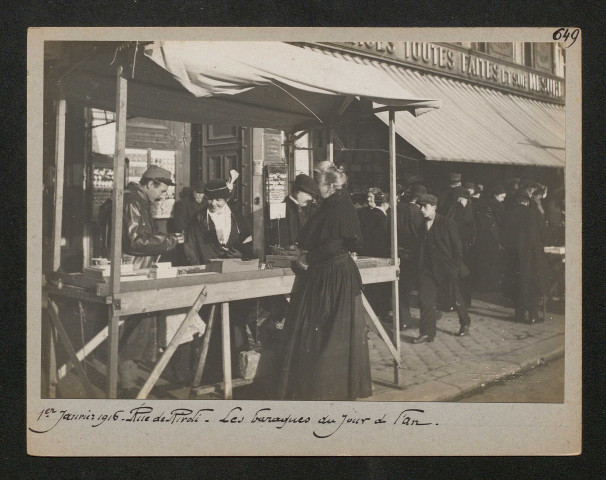 649
CES TOUTES FAITES ET SUR MESURE
1er Janvier 1916 - Rue de Rivoli - Les baraques du Jour de l'an.